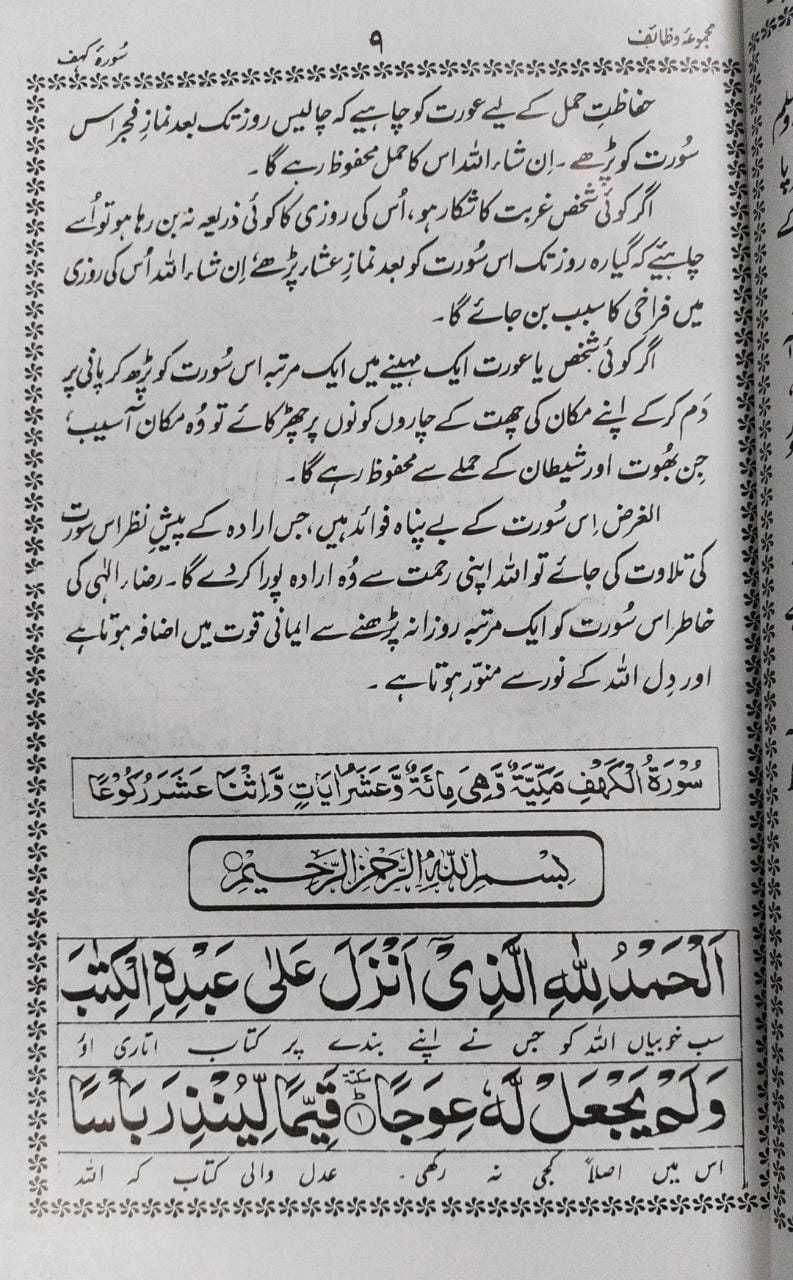 مجموعہ وظائف ۹ سُورۂ کہف
حفاظتِ حمل کے لیے عورت کو چاہیے کہ چالیس روز تک بعد نمازِ فجر اس
سُورت کو پڑھے۔ اِن شاء اللہ اس کا حمل محفوظ رہے گا۔
اگر کوئی شخص غربت کا شکار ہو، اُس کی روزی کا کوئی ذریعہ نہ بن رہا ہو تو اُسے
چاہئیے کہ گیارہ روز تک اس سُورت کو بعد نمازِ عشاء پڑھے اِن شاء اللہ اُس کی روزی
میں فراخی کا سبب بن جائے گا۔
اگر کوئی شخص یا عورت ایک مہینے میں ایک مرتبہ اس سُورت کو پڑھ کر پانی پر
دَم کر کے اپنے مکان کی چھت کے چاروں کونوں پر چھڑکائے تو وُہ مکان آسیب،
جِن بھُوت اور شیطان کے حملے سے محفوظ رہے گا۔
الغرض اِس سُورت کے بے پناہ فوائد ہیں، جس ارادہ کے پیشِ نظر اس سورت
کی تلاوت کی جائے تو اللہ اپنی رحمت سے وُہ ارادہ پورا کر دے گا۔ رضاء الٰہی کی
خاطر اس سُورت کو ایک مرتبہ روزانہ پڑھنے سے ایمانی قوت میں اضافہ ہوتا ہے
اور دِل اللہ کے نور سے منوّر ہوتا ہے۔
سُوْرَةُ الْكَهْفِ مَكِّيَّةٌ وَّهِيَ مِائَةٌ وَّعَشَرُ اٰيَاتٍ وَّاِثْنَا عَشَرَ رُكُوْعًا
بِسْمِ اللّٰهِ الرَّحْمٰنِ الرَّحِيْمِ ○
اَلْحَمْدُ لِلّٰهِ الَّذِیْۤ اَنْزَلَ عَلٰی عَبْدِهِ الْكِتٰبَ
سب خوبیاں اللہ کو جس نے اپنے بندے پر کتاب اتاری اور
وَلَمْ یَجْعَلْ لَّهٗ عِوَجًا ؕ۱ قَیِّمًا لِّیُنْذِرَ بَاْسًا
اس میں اصلاً کجی نہ رکھی۔ عدل والی کتاب کہ اللہ